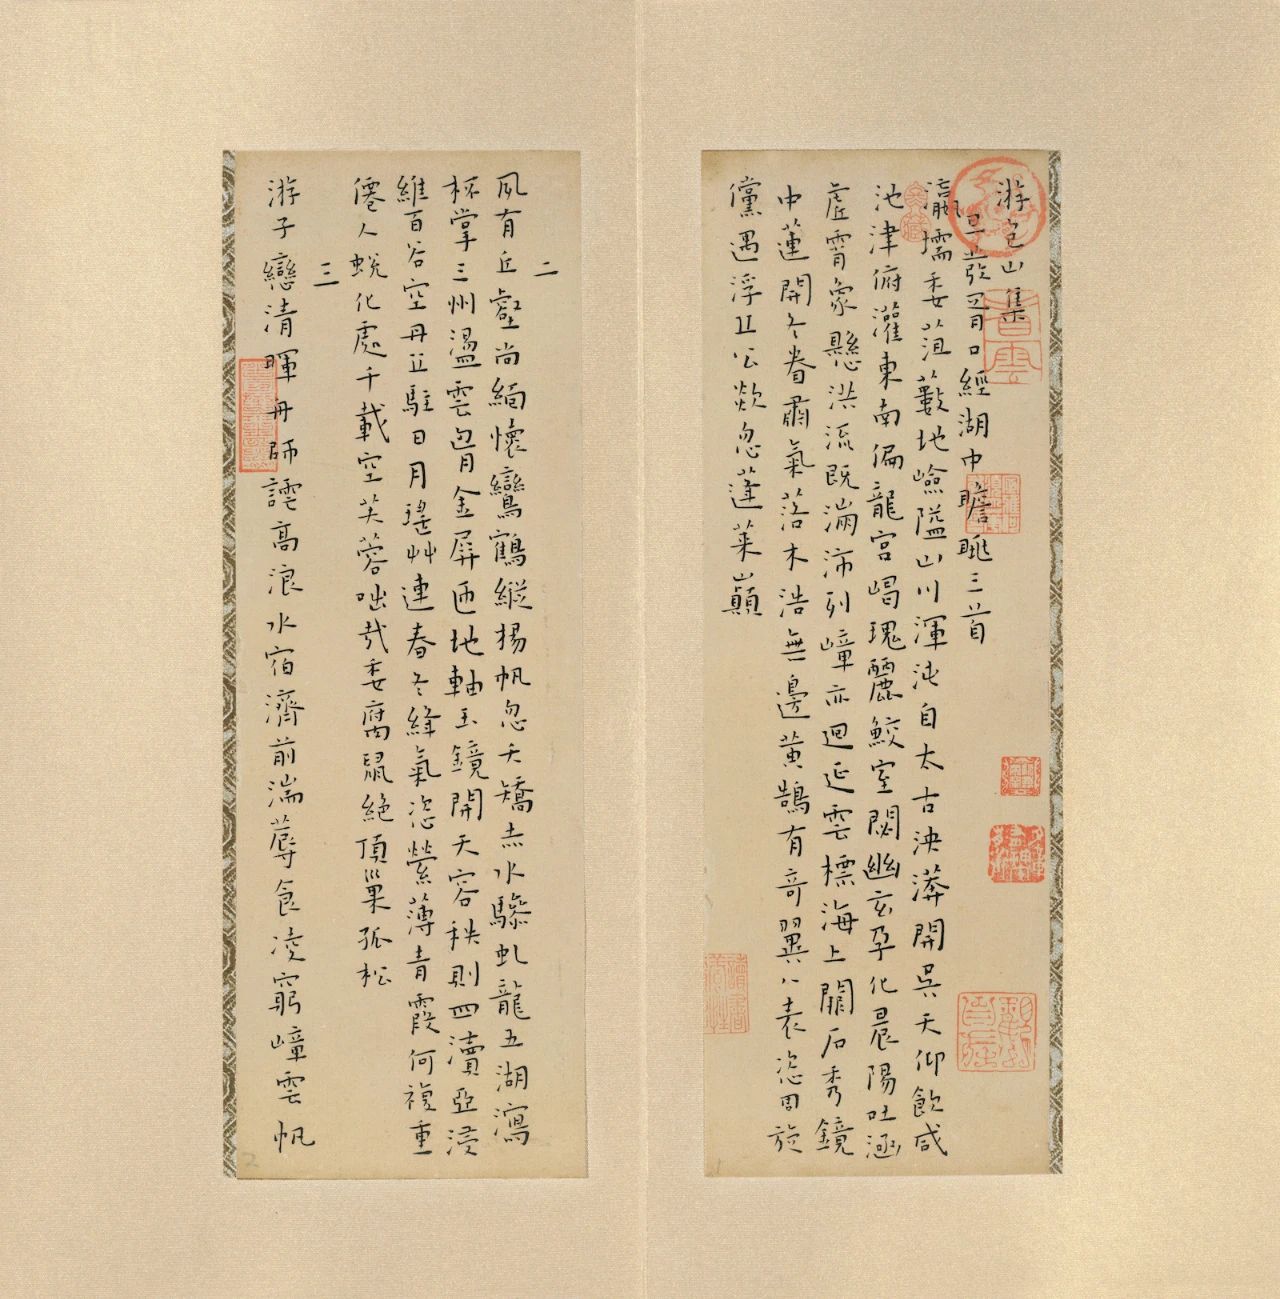 游包山集
早發胥口經湖中瞻眺三首
瀛壖委菹藪地嶮隘山川渾沌自太古泱漭開吳天仰飲咸
池津俯灌東南偏龍宮嵑瑰麗鮫室閟幽玄孕化晨陽吐涵
虛霄象懸洪流既瀰沛列嶂亦迴延雲標海上關石秀鏡
中蓮開冬眷肅氣落木浩無邊黃鵠有奇翼八表恣周旋
儻遇浮丘公欻忽蓬萊巔
二
夙有丘壑尚緬懷鸞鶴縱揚帆忽夭矯赤水驂虬龍五湖瀉
杯掌三州盪雲胷金屏匝地軸玉鏡開天容秩則四瀆亞浸
維百谷空丹丘駐日月瑤艸連春冬絳氣恣縈薄青霞何複重
僊人蛻化處千載空芙蓉咄哉委腐鼠絕頂巢孤松
三
游子戀清暉舟師譁高浪水宿濟前湍蓐食凌窮嶂雲帆